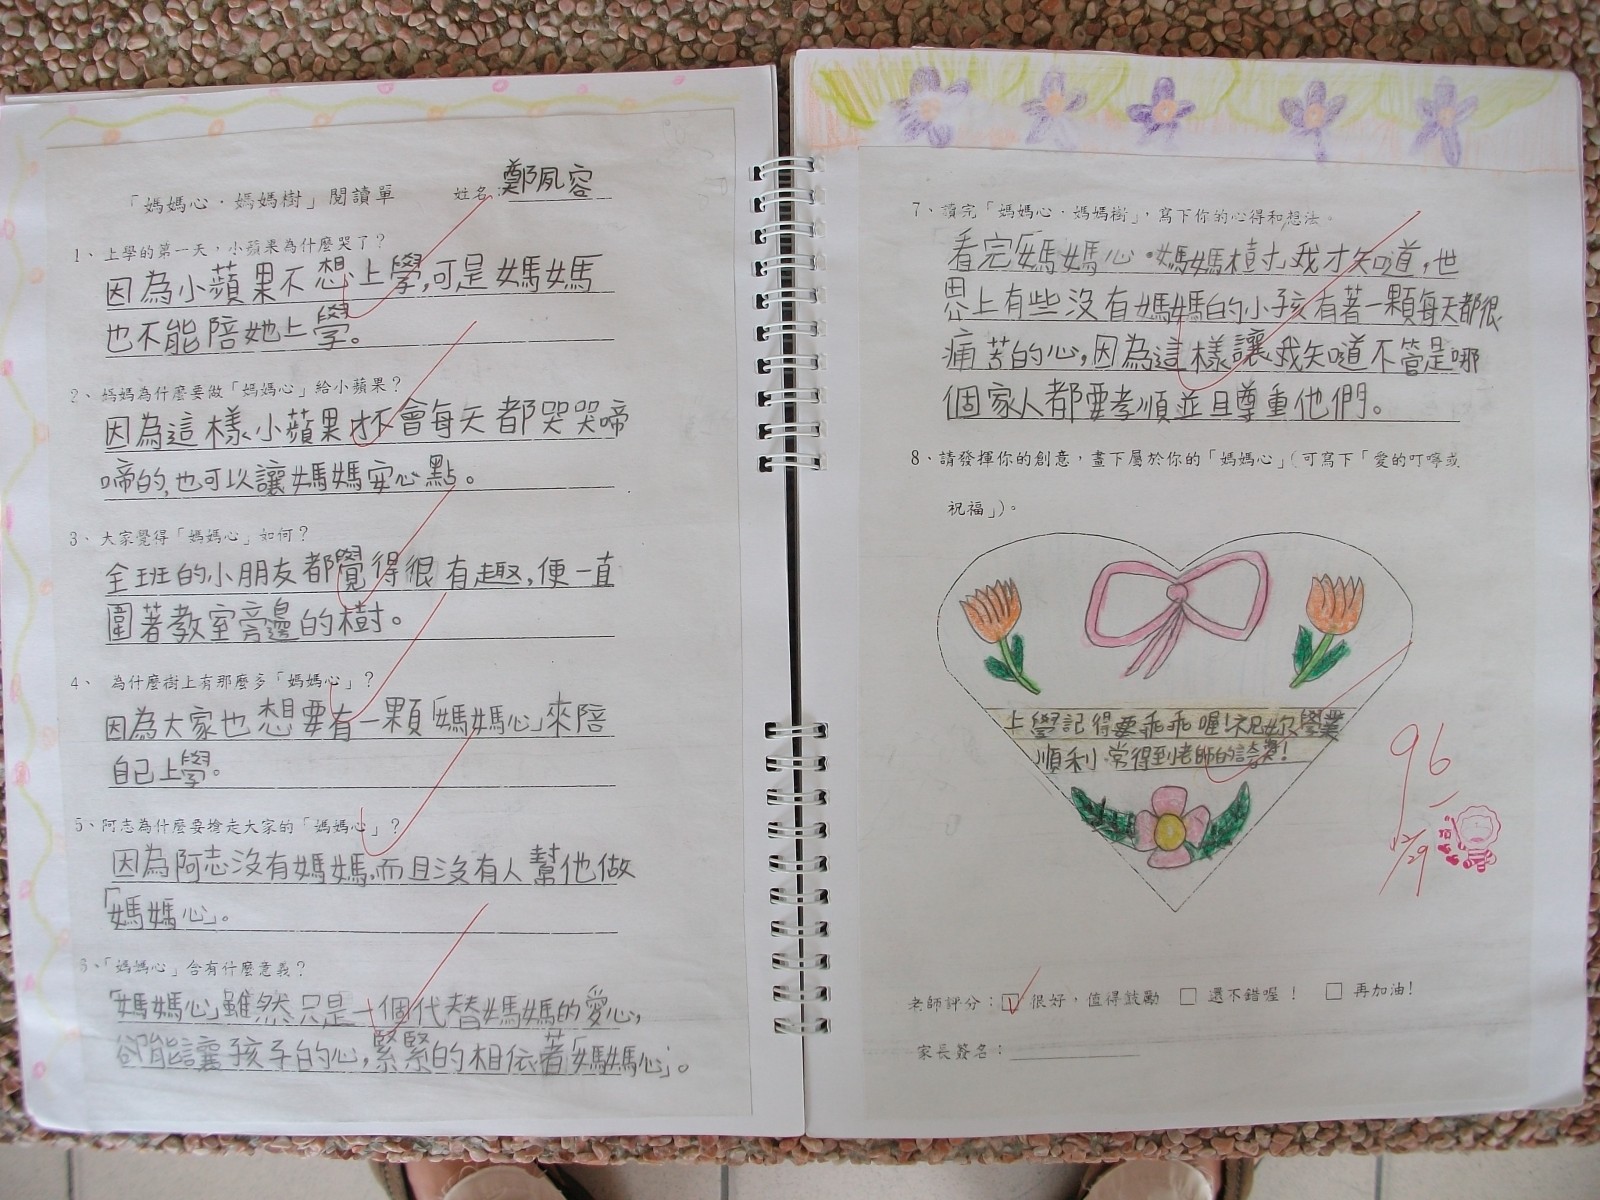 「媽媽心·媽媽樹」閱讀單 姓名:鄭夙容
1、上學的第一天，小蘋果為什麼哭了？
因為小蘋果不想上學，可是媽媽
也不能陪她上學。
2、媽媽為什麼要做「媽媽心」給小蘋果？
因為這樣小蘋果才不會每天都哭哭啼
啼的，也可以讓媽媽安心點。
3、大家覺得「媽媽心」如何？
全班的小朋友都覺得很有趣，便一直
圍著教室旁邊的樹。
4、 為什麼樹上有那麼多「媽媽心」？
因為大家也想要有一顆「媽媽心」來陪
自己上學。
5、阿志為什麼要搶走大家的「媽媽心」？
因為阿志沒有媽媽，而且沒有人幫他做
「媽媽心」。
6、「媽媽心」含有什麼意義？
「媽媽心」雖然只是一個代替媽媽的愛心，
卻能讓孩子的心，緊緊的相依著「媽媽心」。
7、讀完「媽媽心·媽媽樹」，寫下你的心得和想法。
看完「媽媽心·媽媽樹」，我才知道，世
界上有些沒有媽媽的小孩有著一顆每天都很
痛苦的心，因為這樣讓我知道不管是哪
個家人都要孝順並且尊重他們。
8、請發揮你的創意，畫下屬於你的「媽媽心」(可寫下「愛的叮嚀或
祝福」)。
上學記得要乖乖喔！祝妳學業
順利常得到老師的誇獎！
96
12/29
老師評分：☑ 很好，值得鼓勵 □ 還不錯喔！ □ 再加油！
家長簽名：